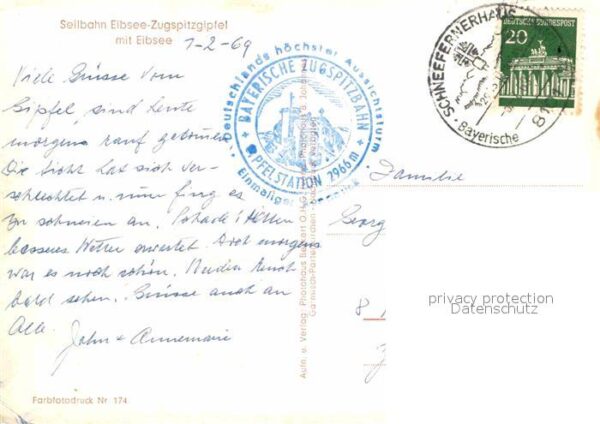 Seilbahn Eibsee-Zugspitzgipfel
mit Eibsee
1-2-69
Viele Grüsse vom
Gipfel, sind heute
morgens rauf gekommen
Die Sicht hat sich ver-
schlechtet u. nun fing es
zu schneien an. Schade! Hätten
besseres Wetter erwartet. Doch morgens
war es noch schön. Werden Euch
bald sehen. Grüsse auch an
Alle.
John + Annemarie
Farbfotodruck Nr. 174
• Deutschlands höchster Aussichtsturm •
+ BAYERISCHE ZUGSPITZBAHN +
GIPFELSTATION 2966 m
Einmaliger
Aufn. u. Verlag: Photohaus
Garmisch-Partenkirchen
SCHNEEFERNERHAUS
Bayerische
DEUTSCHE BUNDESPOST
20
Familie
Georg
8
privacy protection
Datenschutz